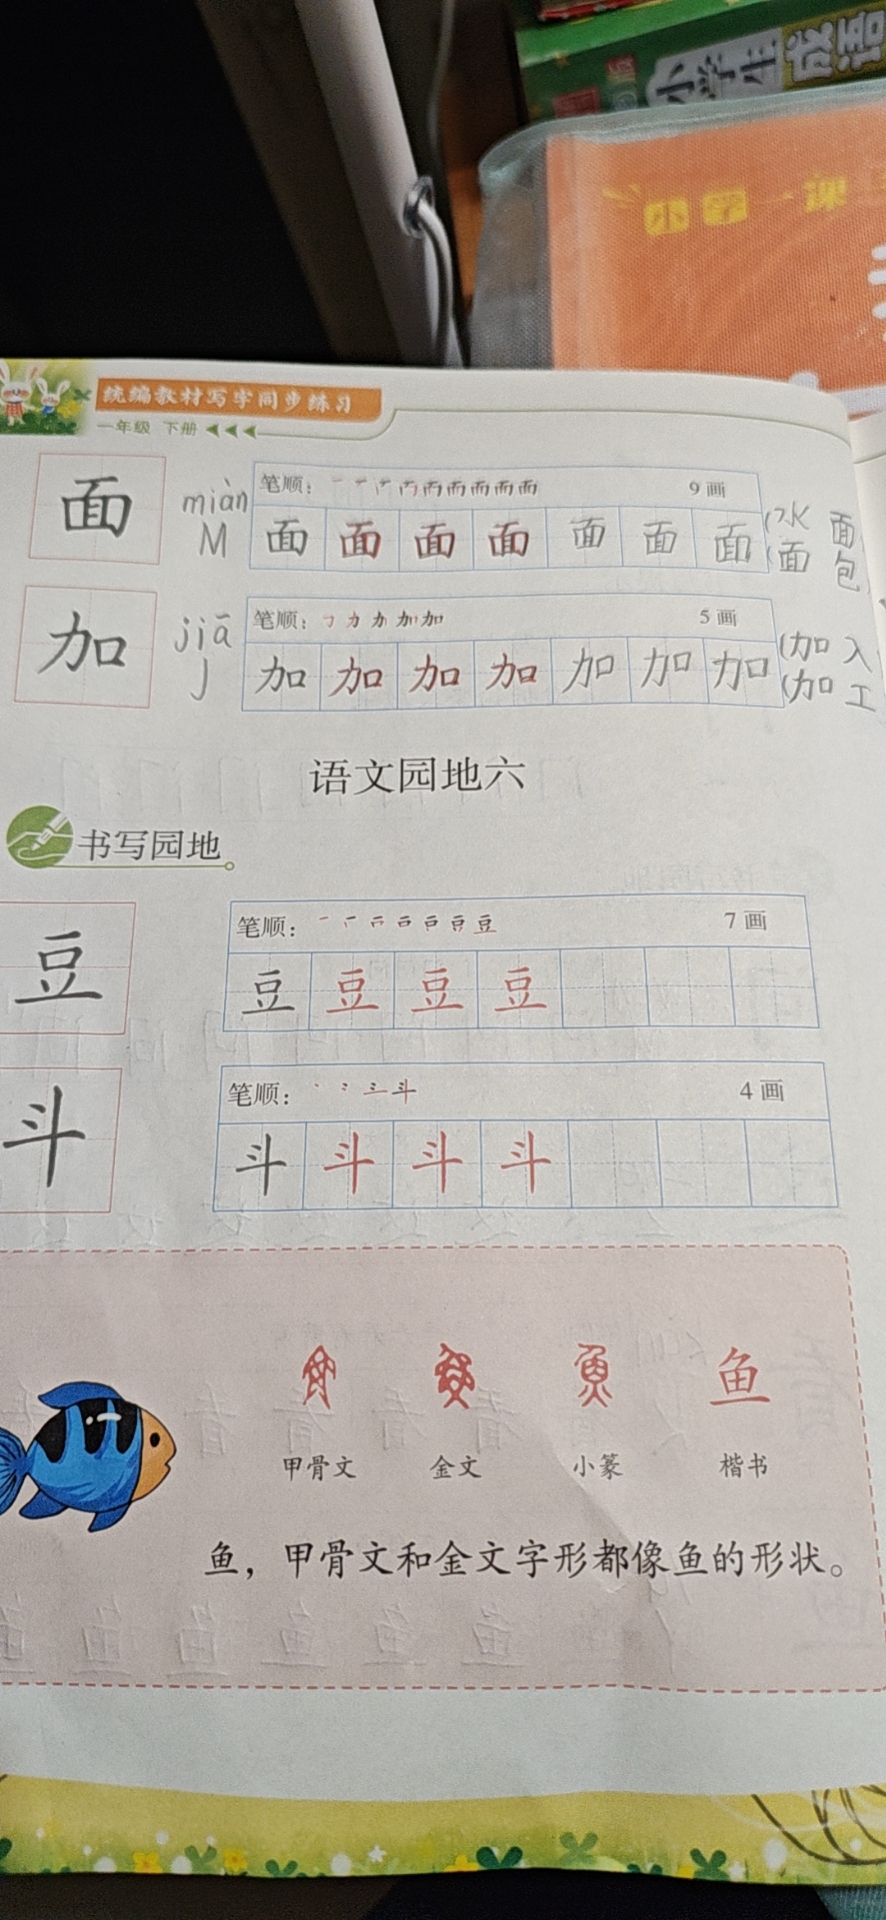 小学生成语
小学
一课
统编教材写字同步练习
一年级 下册
面 miàn 笔顺： 9画
M 面 面 面 面 面 面 面 (水面
(面包
加 jiā 笔顺： 5画
J 加 加 加 加 加 加 加 (加入
(加工
语文园地六
书写园地
豆 笔顺： 7画
豆 豆 豆 豆
斗 笔顺： 4画
斗 斗 斗 斗
鱼
甲骨文 金文 小篆 楷书
鱼，甲骨文和金文字形都像鱼的形状。